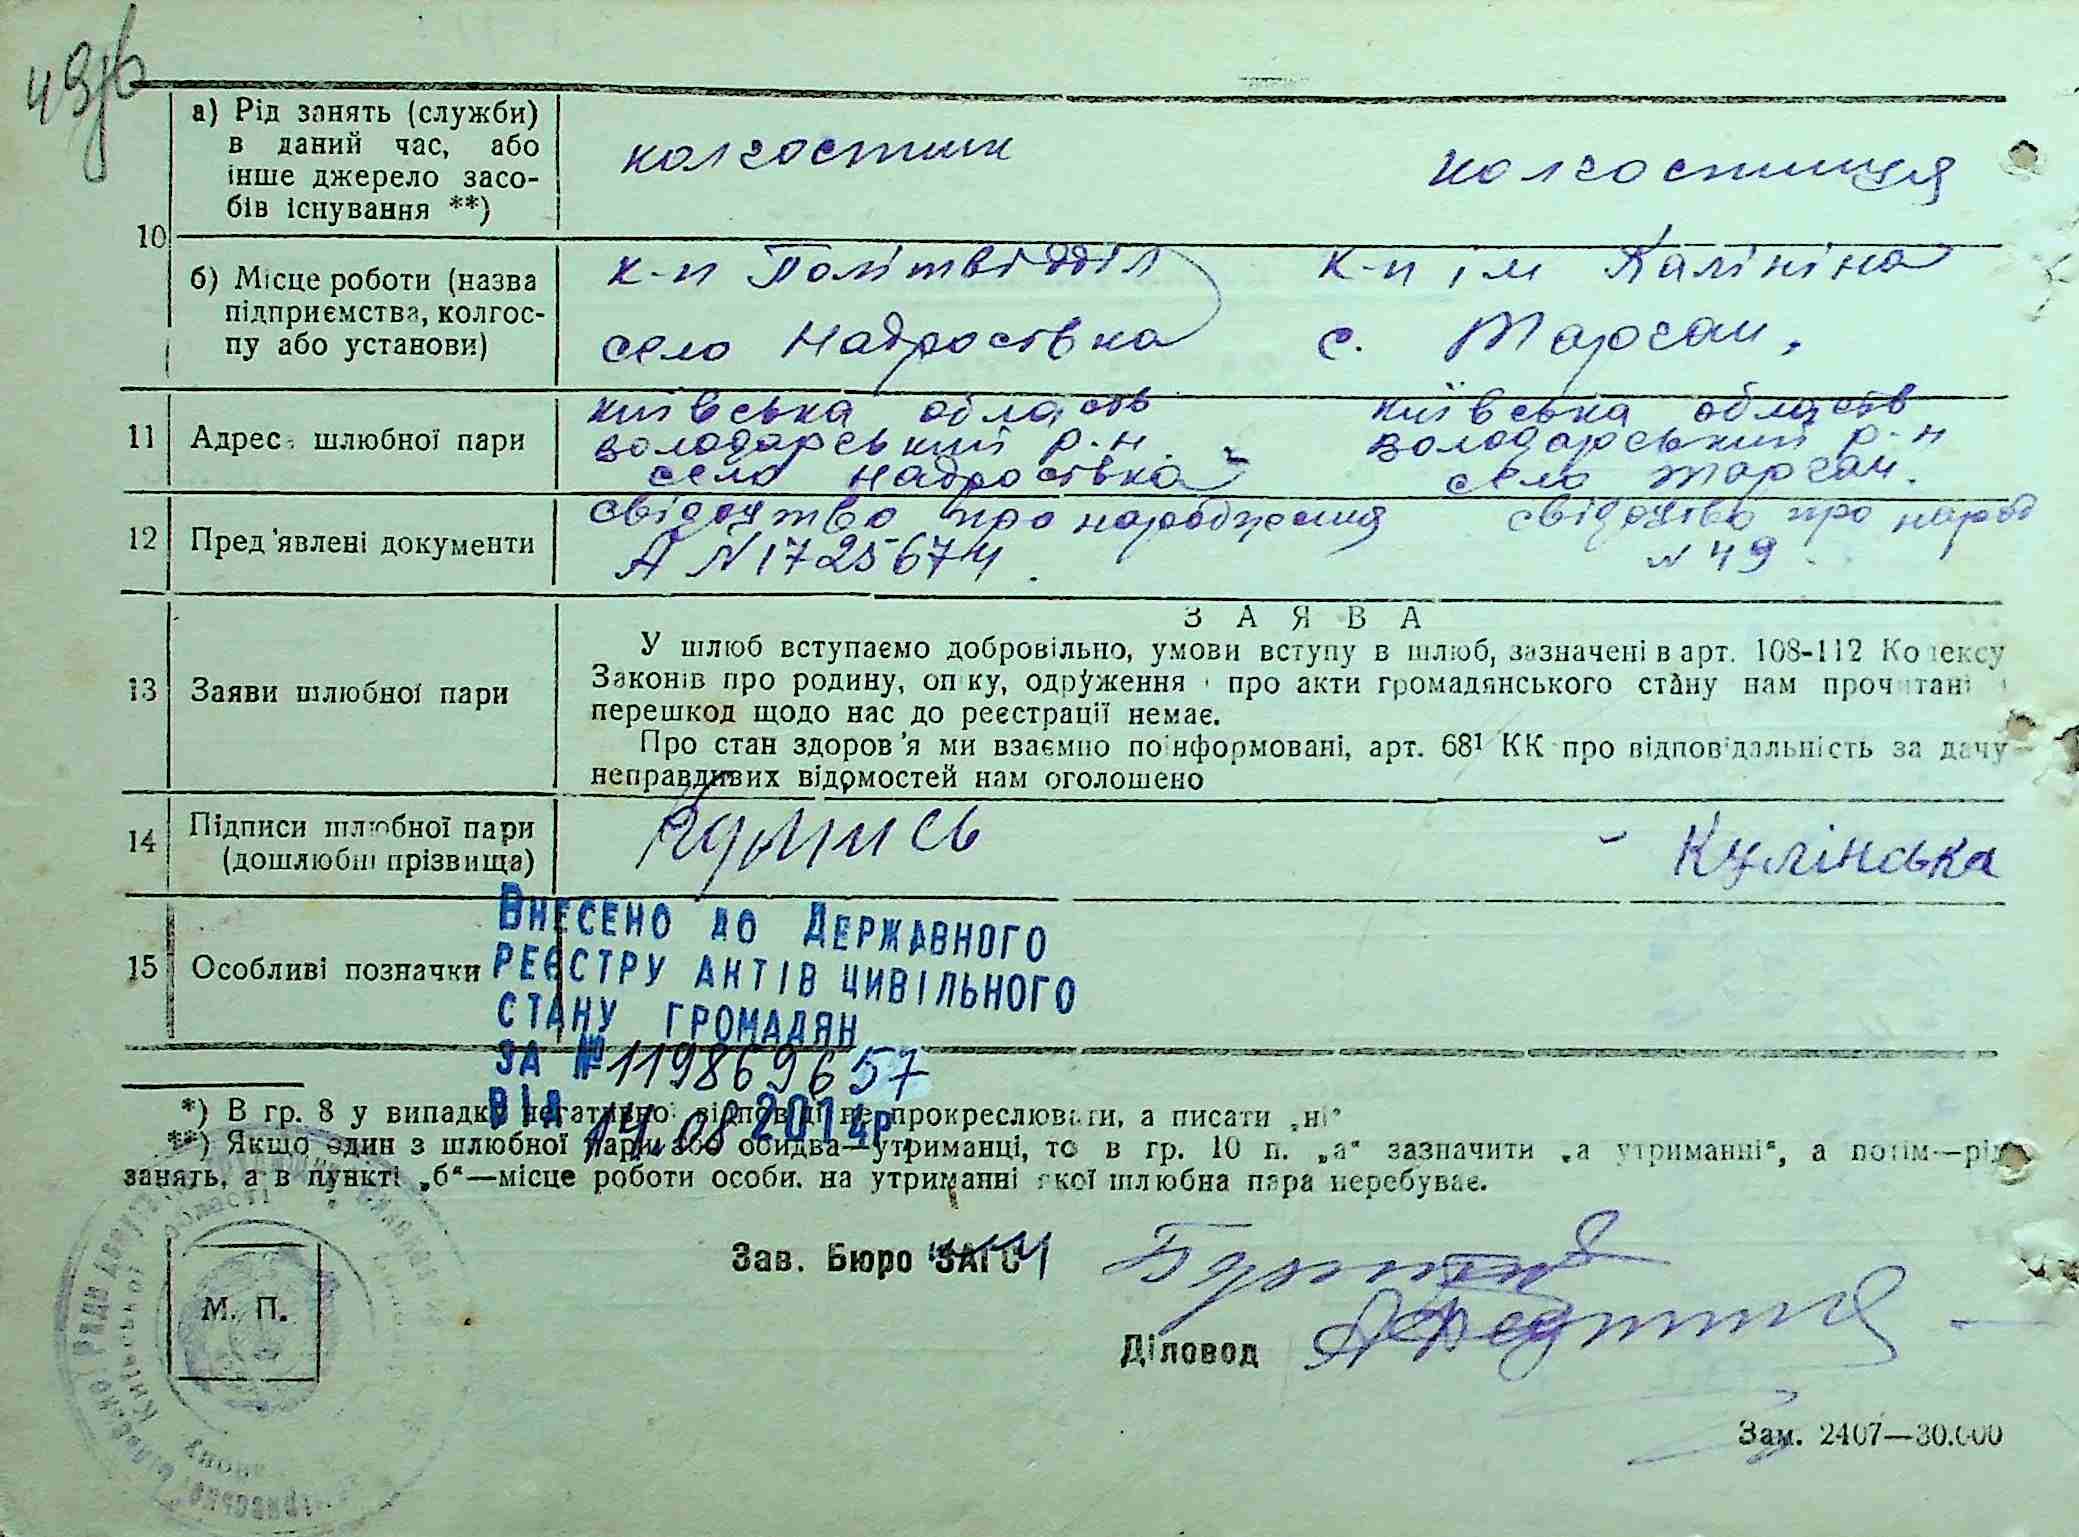 49
10
а) Рід занять (служби)
в даний час, або
інше джерело засо-
бів існування **)
колгоспник
колгоспниця
б) Місце роботи (назва
підприємства, колгос-
пу або установи)
к-п Політвідділ
село Надросівка
к-п ім Калініна
с. Тарган.
11
Адрес шлюбної пари
київська область
володарський р-н
село Надросівка
київська область
володарський р-н
село Тарган.
12
Пред'явлені документи
свідоцтво про народження
А N 1725674.
свідоцтво про народ
N 49
13
Заяви шлюбної пари
ЗАЯВА
У шлюб вступаємо добровільно, умови вступу в шлюб, зазначені в арт. 108-112 Кодексу
Законів про родину, опіку, одруження і про акти громадянського стану нам прочитані і
перешкод щодо нас до реєстрації немає.
Про стан здоров'я ми взаємно поінформовані, арт. 68¹ КК про відповідальність за дачу
неправдивих відомостей нам оголошено
14
Підписи шлюбної пари
(дошлюбні прізвища)
Кулінська
15
Особливі позначки
Внесено до Державного
реєстру актів цивільного
стану громадян
за № 1198696 57
від 14.08 2014р.
*) В гр. 8 у випадку негативної відповіді не прокреслювати, а писати „ні"
**) Якщо один з шлюбної пари або обидва—утриманці, то в гр. 10 п. „а" зазначити „а утриманні", а потім—рід
занять, а в пункті „б"—місце роботи особи, на утриманні якої шлюбна пара перебуває.
М. П.
Зав. Бюро ЗАГС
Діловод
Зам. 2407—30.000